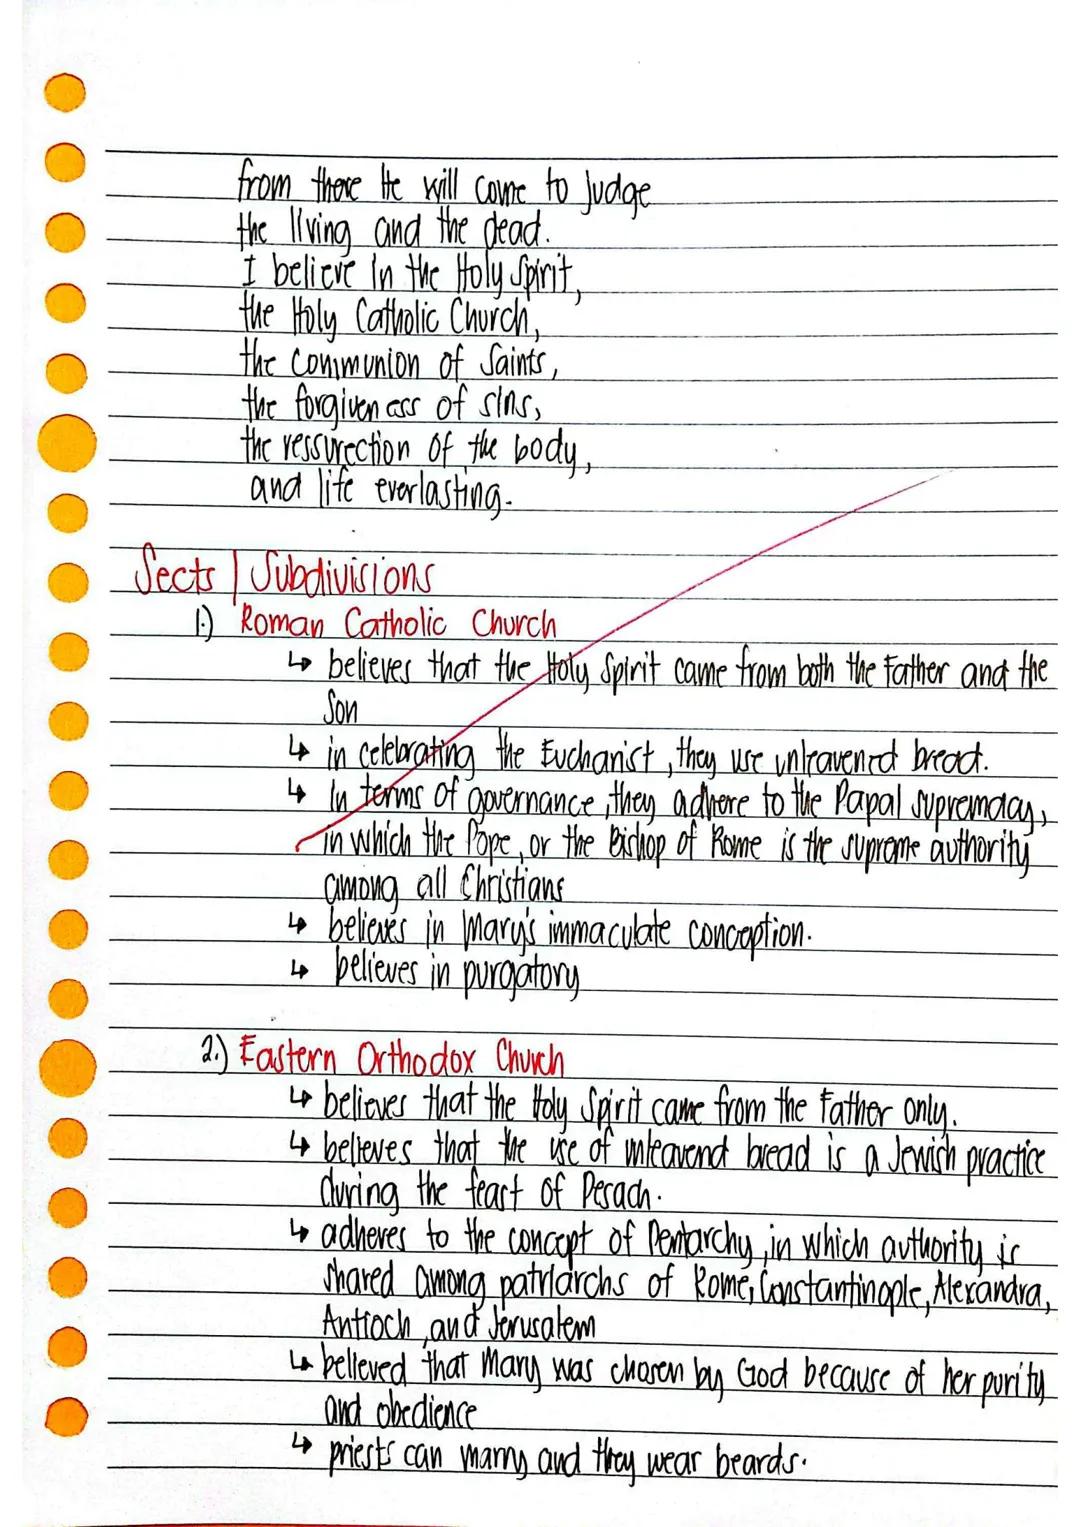 from there He will come to judge
the living and the dead.
I believe in the Holy Spirit,
the Holy Catholic Church,
the communion of Saints,
the forgiveness of sins,
the ressurection of the body,
and life everlasting.
Sects | Subdivisions
1.) Roman Catholic Church
↳ believes that the Holy Spirit came from both the Father and the
Son
↳ in celebrating the Eucharist, they use unleavened bread.
↳ In terms of governance, they adhere to the Papal supremacy,
in which the Pope, or the Bishop of Rome is the supreme authority
among all Christians
↳ believes in Mary's immaculate conception.
↳ believes in purgatory
2.) Eastern Orthodox Church
↳ believes that the Holy Spirit came from the Father only.
↳ believes that the use of unleavend bread is a Jewish practice
during the feast of Pesach.
↳ adheres to the concept of Pentarchy, in which authority is
shared among patriarchs of Rome, Constantinople, Alexandra,
Antioch, and Jerusalem
↳ believed that Mary was chosen by God because of her purity
and obedience
↳ priests can marry and they wear beards.